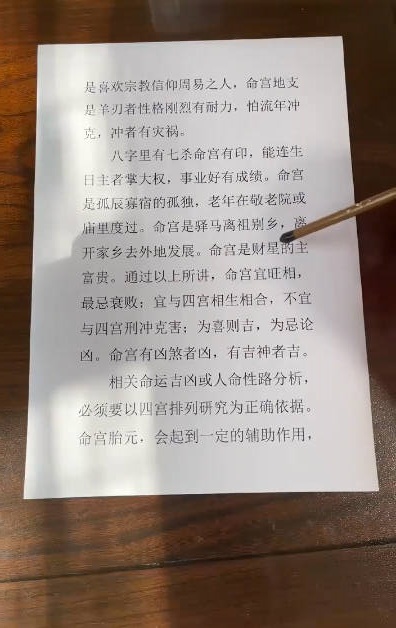 是喜欢宗教信仰周易之人，命宫地支
是羊刃者性格刚烈有耐力，怕流年冲
克，冲者有灾祸。
八字里有七杀命宫有印，能连生
日主者掌大权，事业好有成绩。命宫
是孤辰寡宿的孤独，老年在敬老院或
庙里度过。命宫是驿马离祖别乡，离
开家乡去外地发展。命宫是财星的主
富贵。通过以上所讲，命宫宜旺相，
最忌衰败；宜与四宫相生相合，不宜
与四宫刑冲克害；为喜则吉，为忌论
凶。命宫有凶煞者凶，有吉神者吉。
相关命运吉凶或人命性路分析，
必须要以四宫排列研究为正确依据。
命宫胎元，会起到一定的辅助作用，